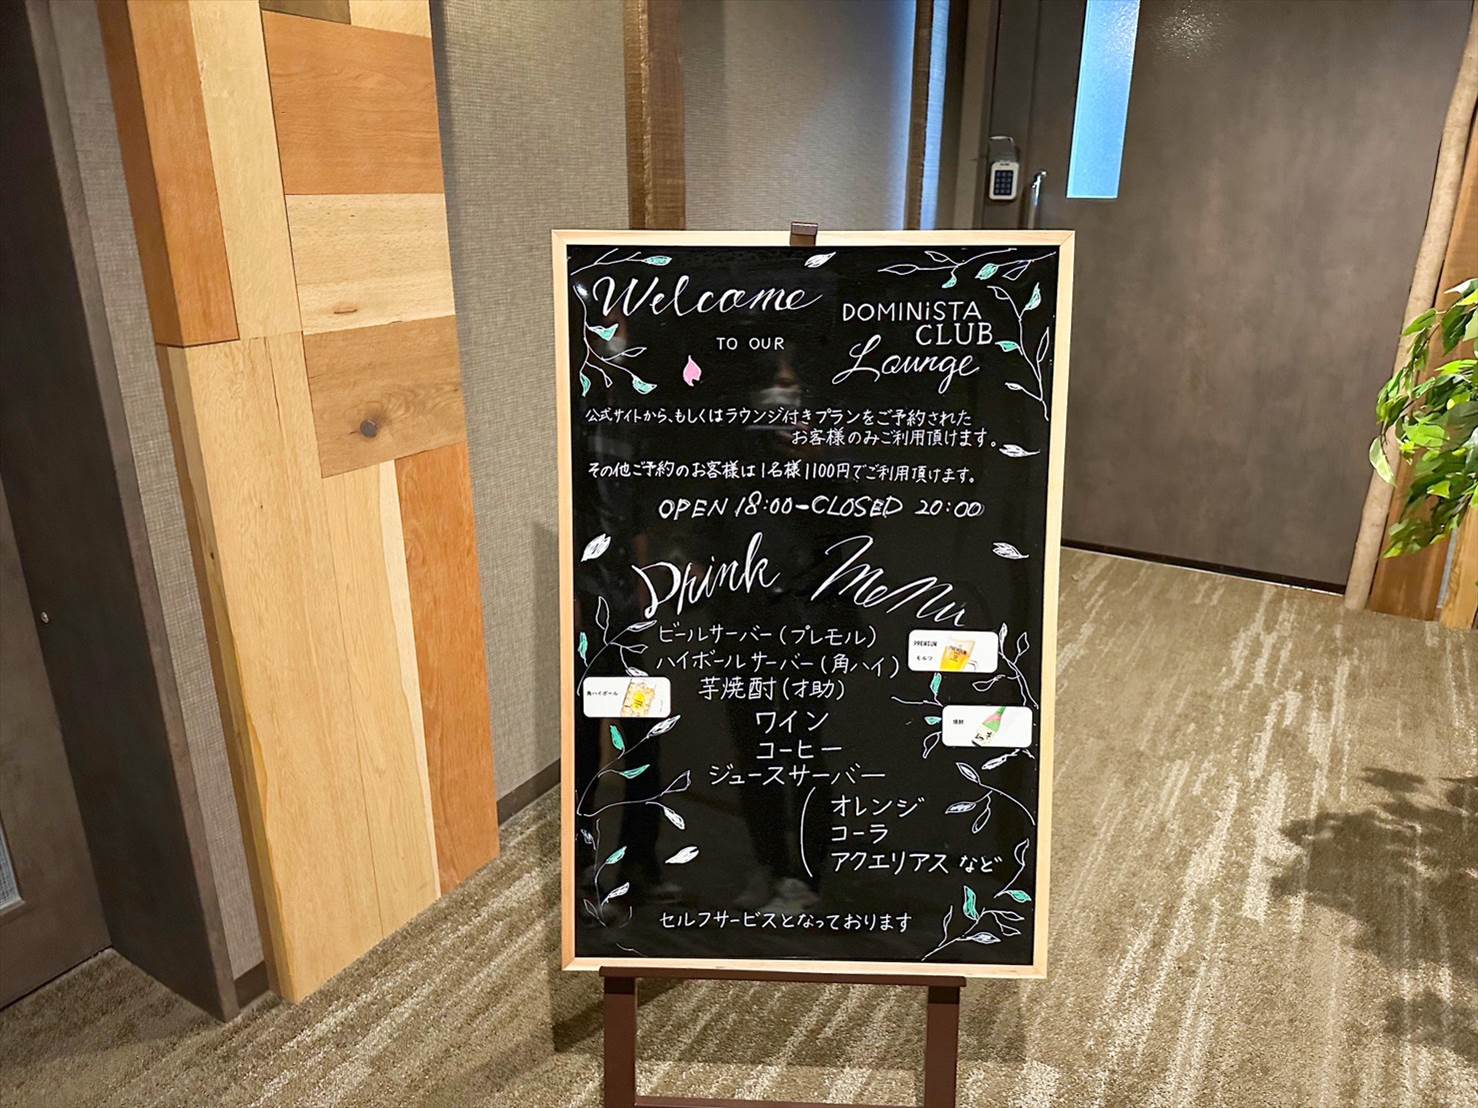 Welcome
TO OUR
DOMINiSTA
CLUB
Lounge
公式サイトから、もしくはラウンジ付きプランをご予約された
お客様のみご利用頂けます。
その他ご予約のお客様は1名様1100円でご利用頂けます。
OPEN 18:00-CLOSED 20:00
Drink Menu
ビールサーバー(プレモル)
ハイボールサーバー(角ハイ)
芋焼酎(才助)
ワイン
コーヒー
ジュースサーバー
オレンジ
コーラ
アクエリアスなど
セルフサービスとなっております
PREMIUM
モルツ
角ハイボール
焼酎